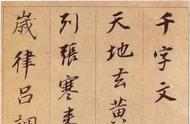 千字文
天地玄黄
列張寒来
歲律呂調